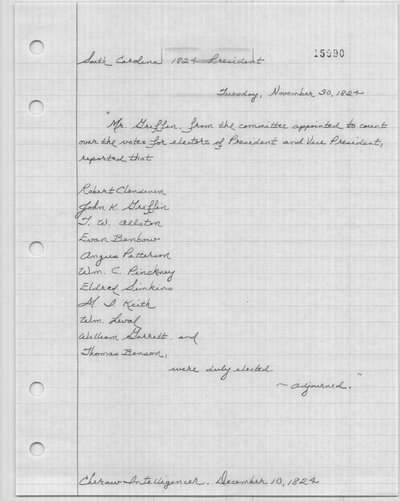 South Carolina 1824 President
15690
Tuesday, November 30, 1824
"Mr. Griffin, from the committee appointed to count
over the votes for electors of President and Vice President,
reported that
Robert Clendenen
John K. Griffin
T. W. Allston
Evan Benbow
Angus Patterson
Wm. C. Pinckney
Eldred Simkins
M I Keith
Wm. Laval
William Garrett, and
Thomas Benson,
were duly elected.
~ adjourned. "
Cheraw Intelligencer. December 10, 1824